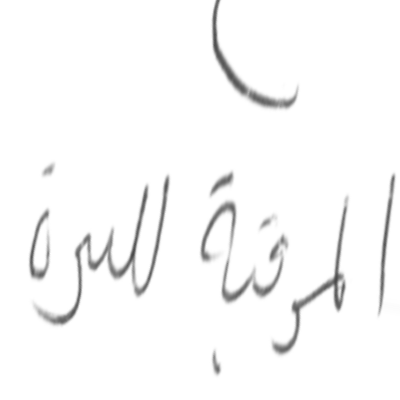 المرقبة للسرة